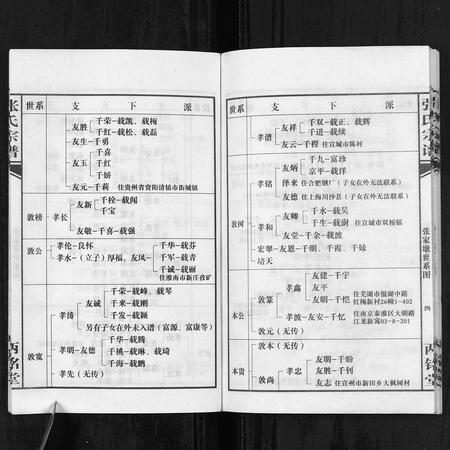 张氏宗谱
世系 支下派
友胜 千荣—载凯、载梅
千红—载松、载磊
友生—千勇
千喜
友玉 千红
千娇
友元—千莉 住贵州省贵阳清镇市街城镇
敦榜 孝长 友新 千栓—载闯
千宝
友敬—千喜—载强
敦公 孝伦—良怀 千华—载芬
孝水—(立子)厚福、友凤 千军—载青
千诚—载丽
住淮南市新庄孜矿
敦宽 孝涛 友诚 千荣—载峰、载琴
千来—载刚
千发—载颖
另有子女在外未入谱(富源、富康等)
孝明—友德 千华—载腾
千桃—载琳、载琦
千海—载鹏
孝先(无传)
两铭堂
张氏宗谱
世系 支下派
敦树 孝谱 友祥 千双—载正、载辉
千进—载续
友云—千程 住宣城市陈村
孝铭 友炳 千九—富珍
京平—载洋
泽来 住合肥钢厂(子女在外无法联系)
友德 住上海川沙县(子女在外无法联系)
孝和 友卿 千水—载昊
千生—载澍 住宣城市双桥镇
友堂—千余—载波
宏翠—友恩—千明、千霞、千妹
培天
本公 敦篆 孝鑫 友建—千宇
友平
友明—千恺 住芜湖市银湖中路
红梅新村26幢1-402
孝波—友安—千忆 住南京秦淮区大明路
江龙新寓03-8-201
敦元(无传)
本贵 敦本(无传)
敦尚 孝忠 友明—千盼
友胜—千钊
友志 住宣州市新田乡大枫树村
张家墩世系图
四
两铭堂